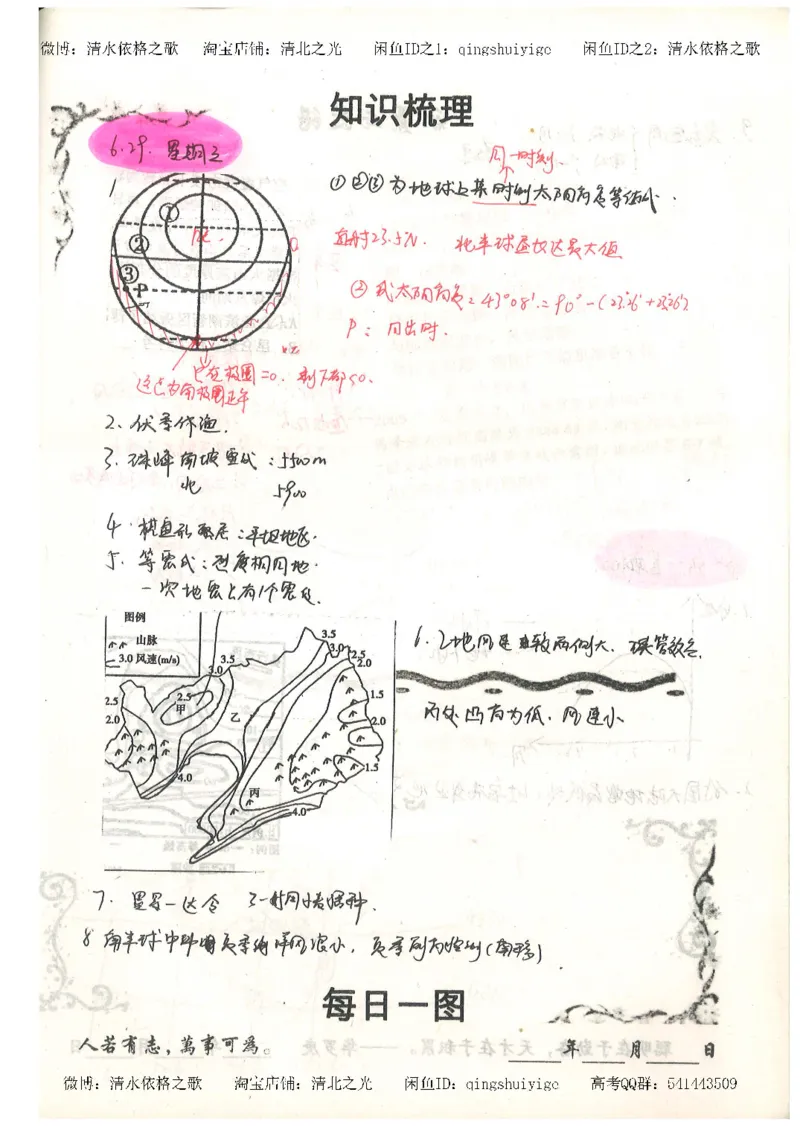 微博：清水依格之歌 淘宝店铺：清北之光 闲鱼ID之1：qingshuiyige 闲鱼ID之2：清水依格之歌
知识梳理
6.29. 星期三
同一时刻.
1 ①②③为地球上某时刻太阳高度等值线.
直射23.5°N. 北半球 达最大值
② 太阳高度=43°08'=90°-(23°26'+23°26')
P：日出时.
① ② ③ P
极圈=0. 剩下都50.
这点为南极圈正午
2、伏季休渔.
3、珠峰南坡雪线：5500m
北 5900
4、棋盘形 ：平坦地区.
5、等震线：烈度相同地.
一次地震只有1个震级.
图例
山脉
3.0 风速(m/s)
3.5 3.0 2.5 2.0 1.5 2.0 1.5
3.5 3.0 2.5 2.5 2.0
甲 乙 丙
4.0 4.0
6、乙地风速 较两侧大. 狭管效应.
丙处凸向为低. 风速小
7、
8 南半球中 夏季
每日一图
人若有志，萬事可為。 年 月 日
微博：清水依格之歌 淘宝店铺：清北之光 闲鱼ID：qingshuiyige 高考QQ群：541443509